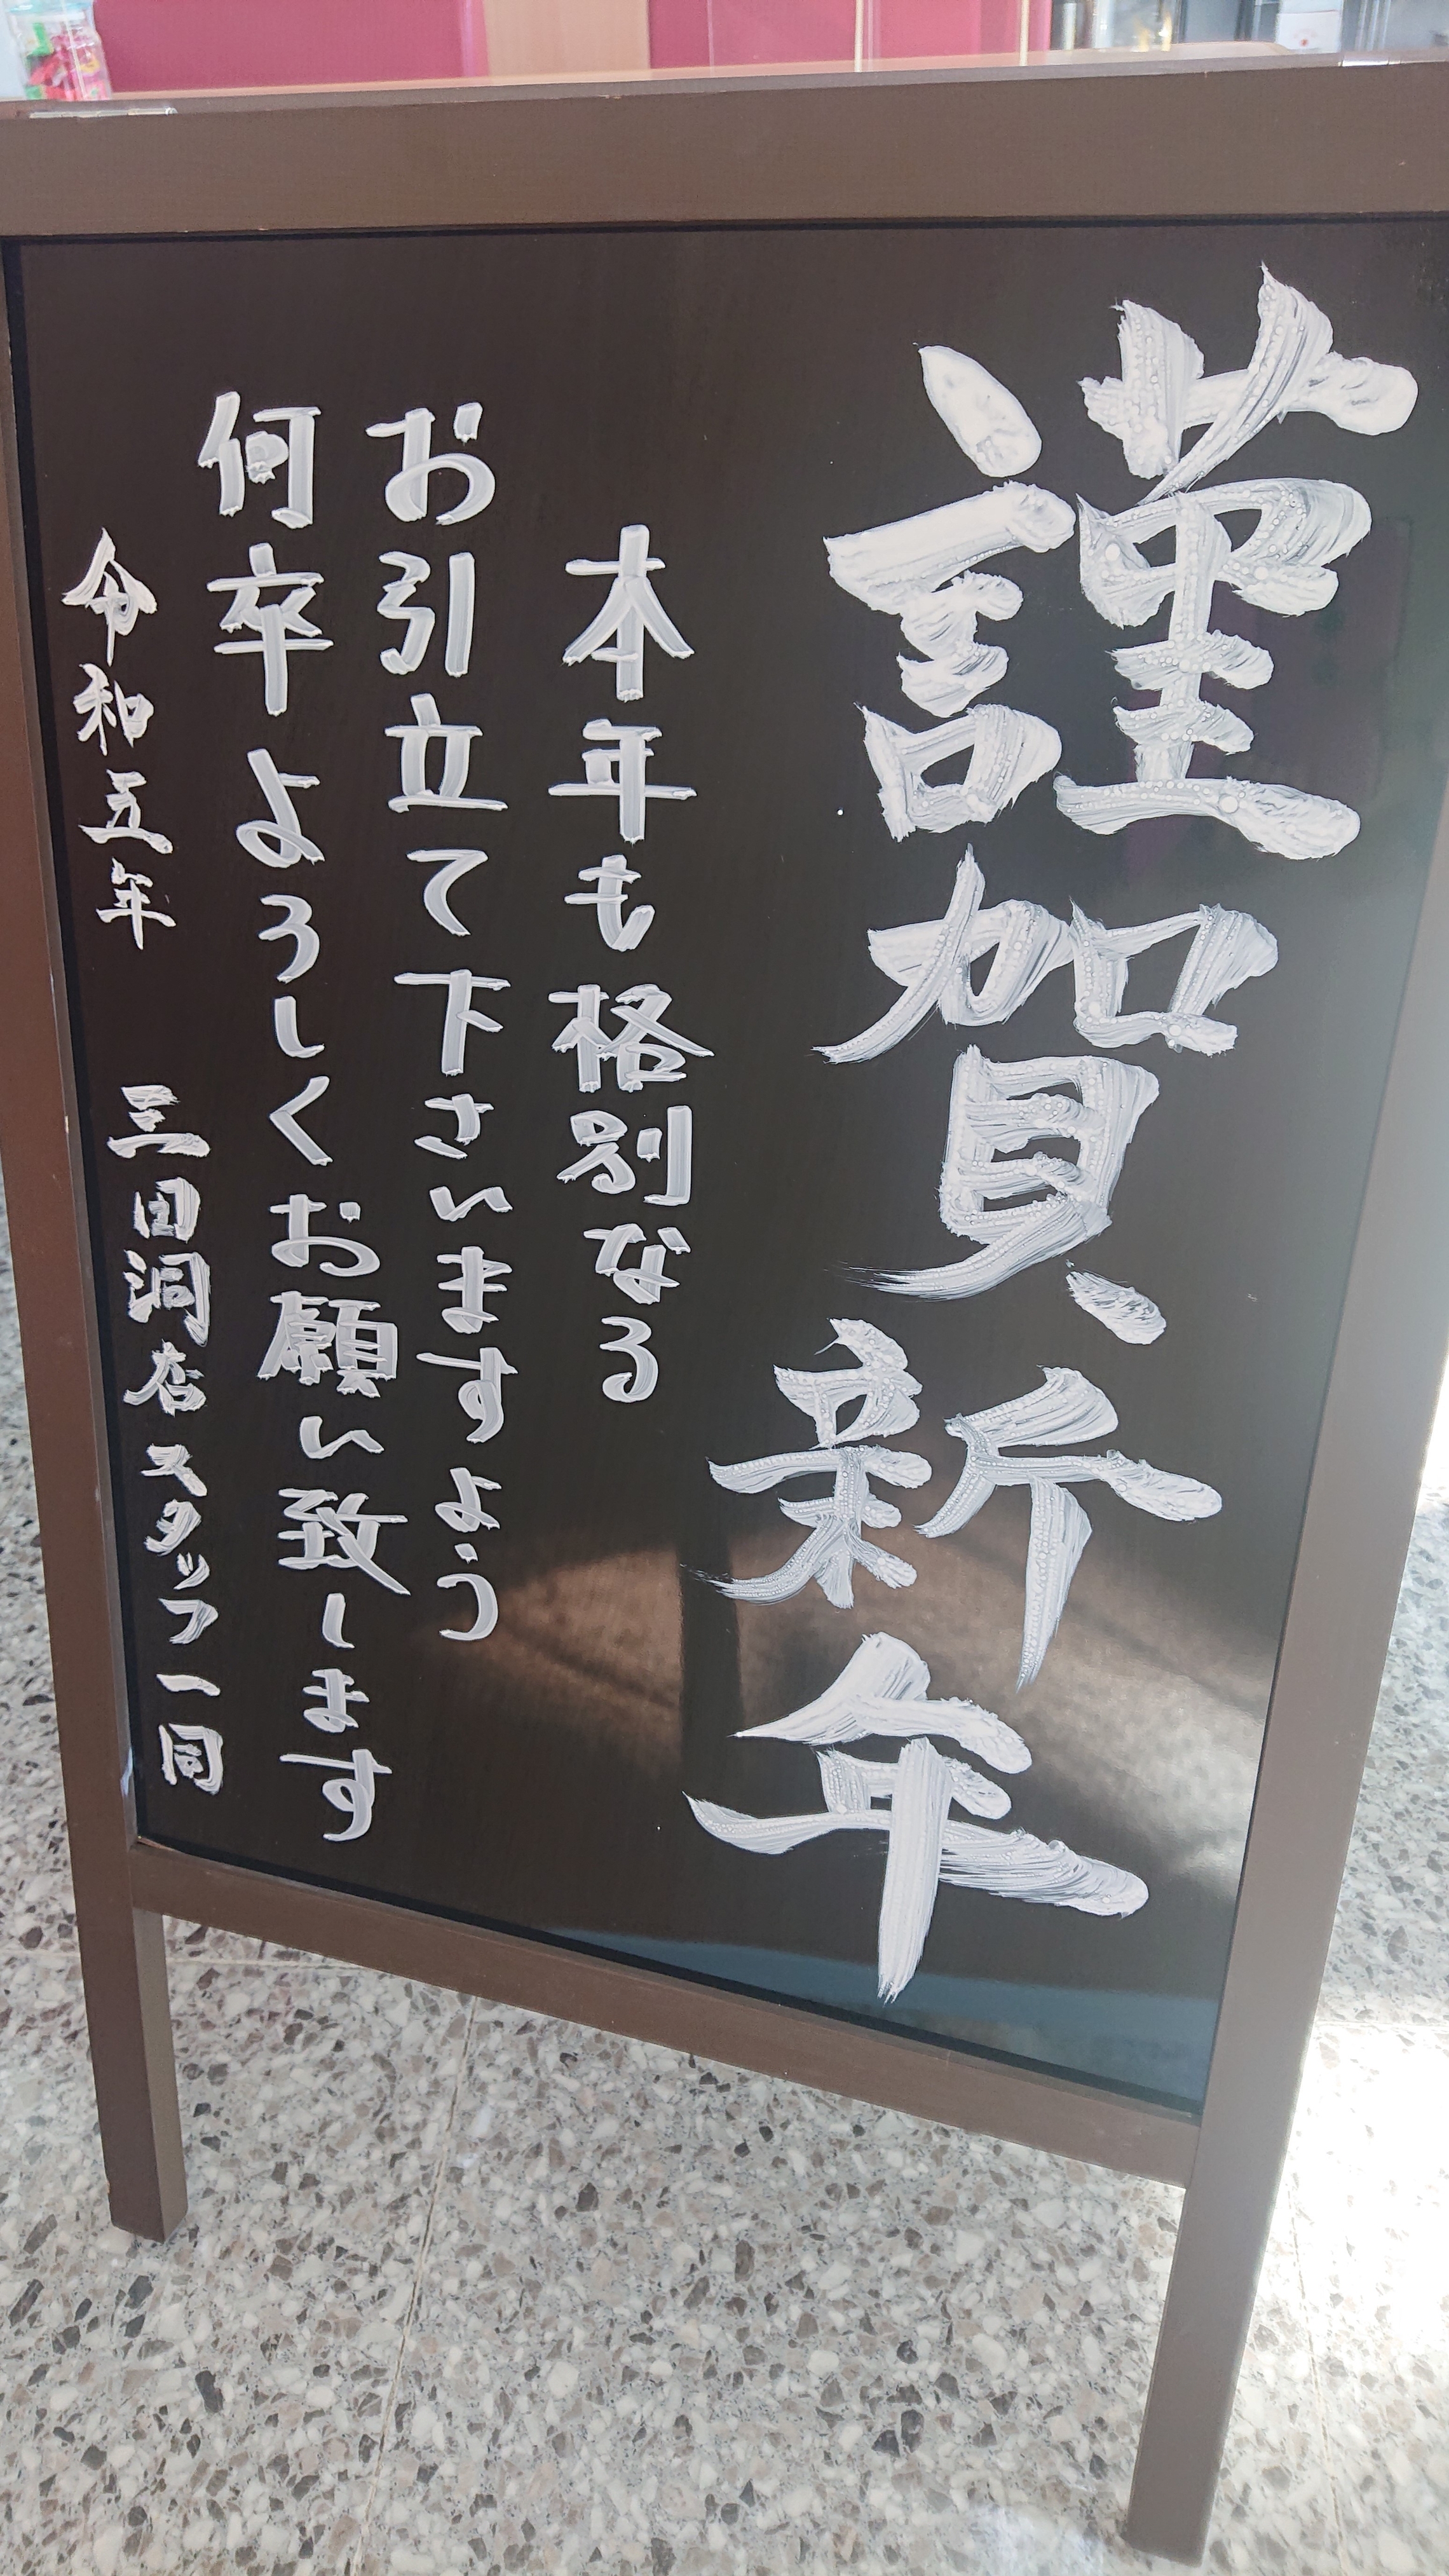 謹賀新年
本年も格別なる
お引立て下さいますよう
何卒よろしくお願い致します
令和五年 三田洞店スタッフ一同